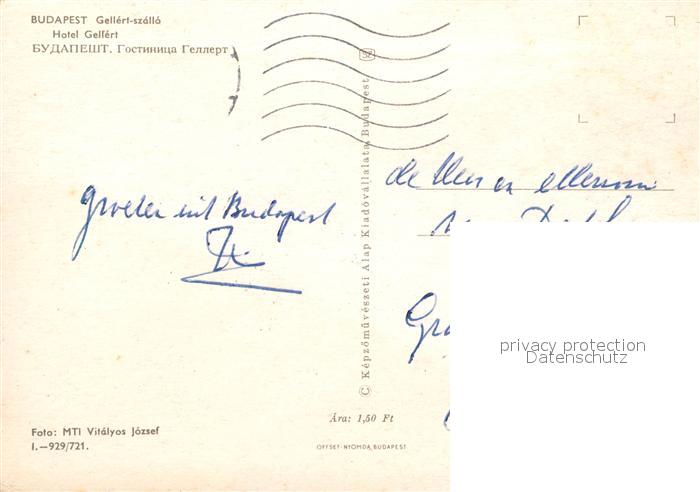 BUDAPEST Gellért-szálló
Hotel Gellért
БУДАПЕШТ. Гостиница Геллерт
groeten uit Budapest
de Heer en
© Képzőművészeti Alap Kiadóvállalata, Budapest
privacy protection
Datenschutz
Foto: MTI Vitályos József
I.—929/721.
Ára: 1,50 Ft
OFFSET-NYOMDA, BUDAPEST